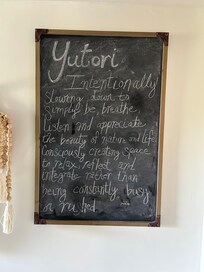 Yutori
Intentionally
Slowing down to
simplify be, breathe,
Listen and appreciate
the beauty of nature and life.
Consciously creating space
to relax, reflect and
integrate rather than
being constantly busy
or rushed